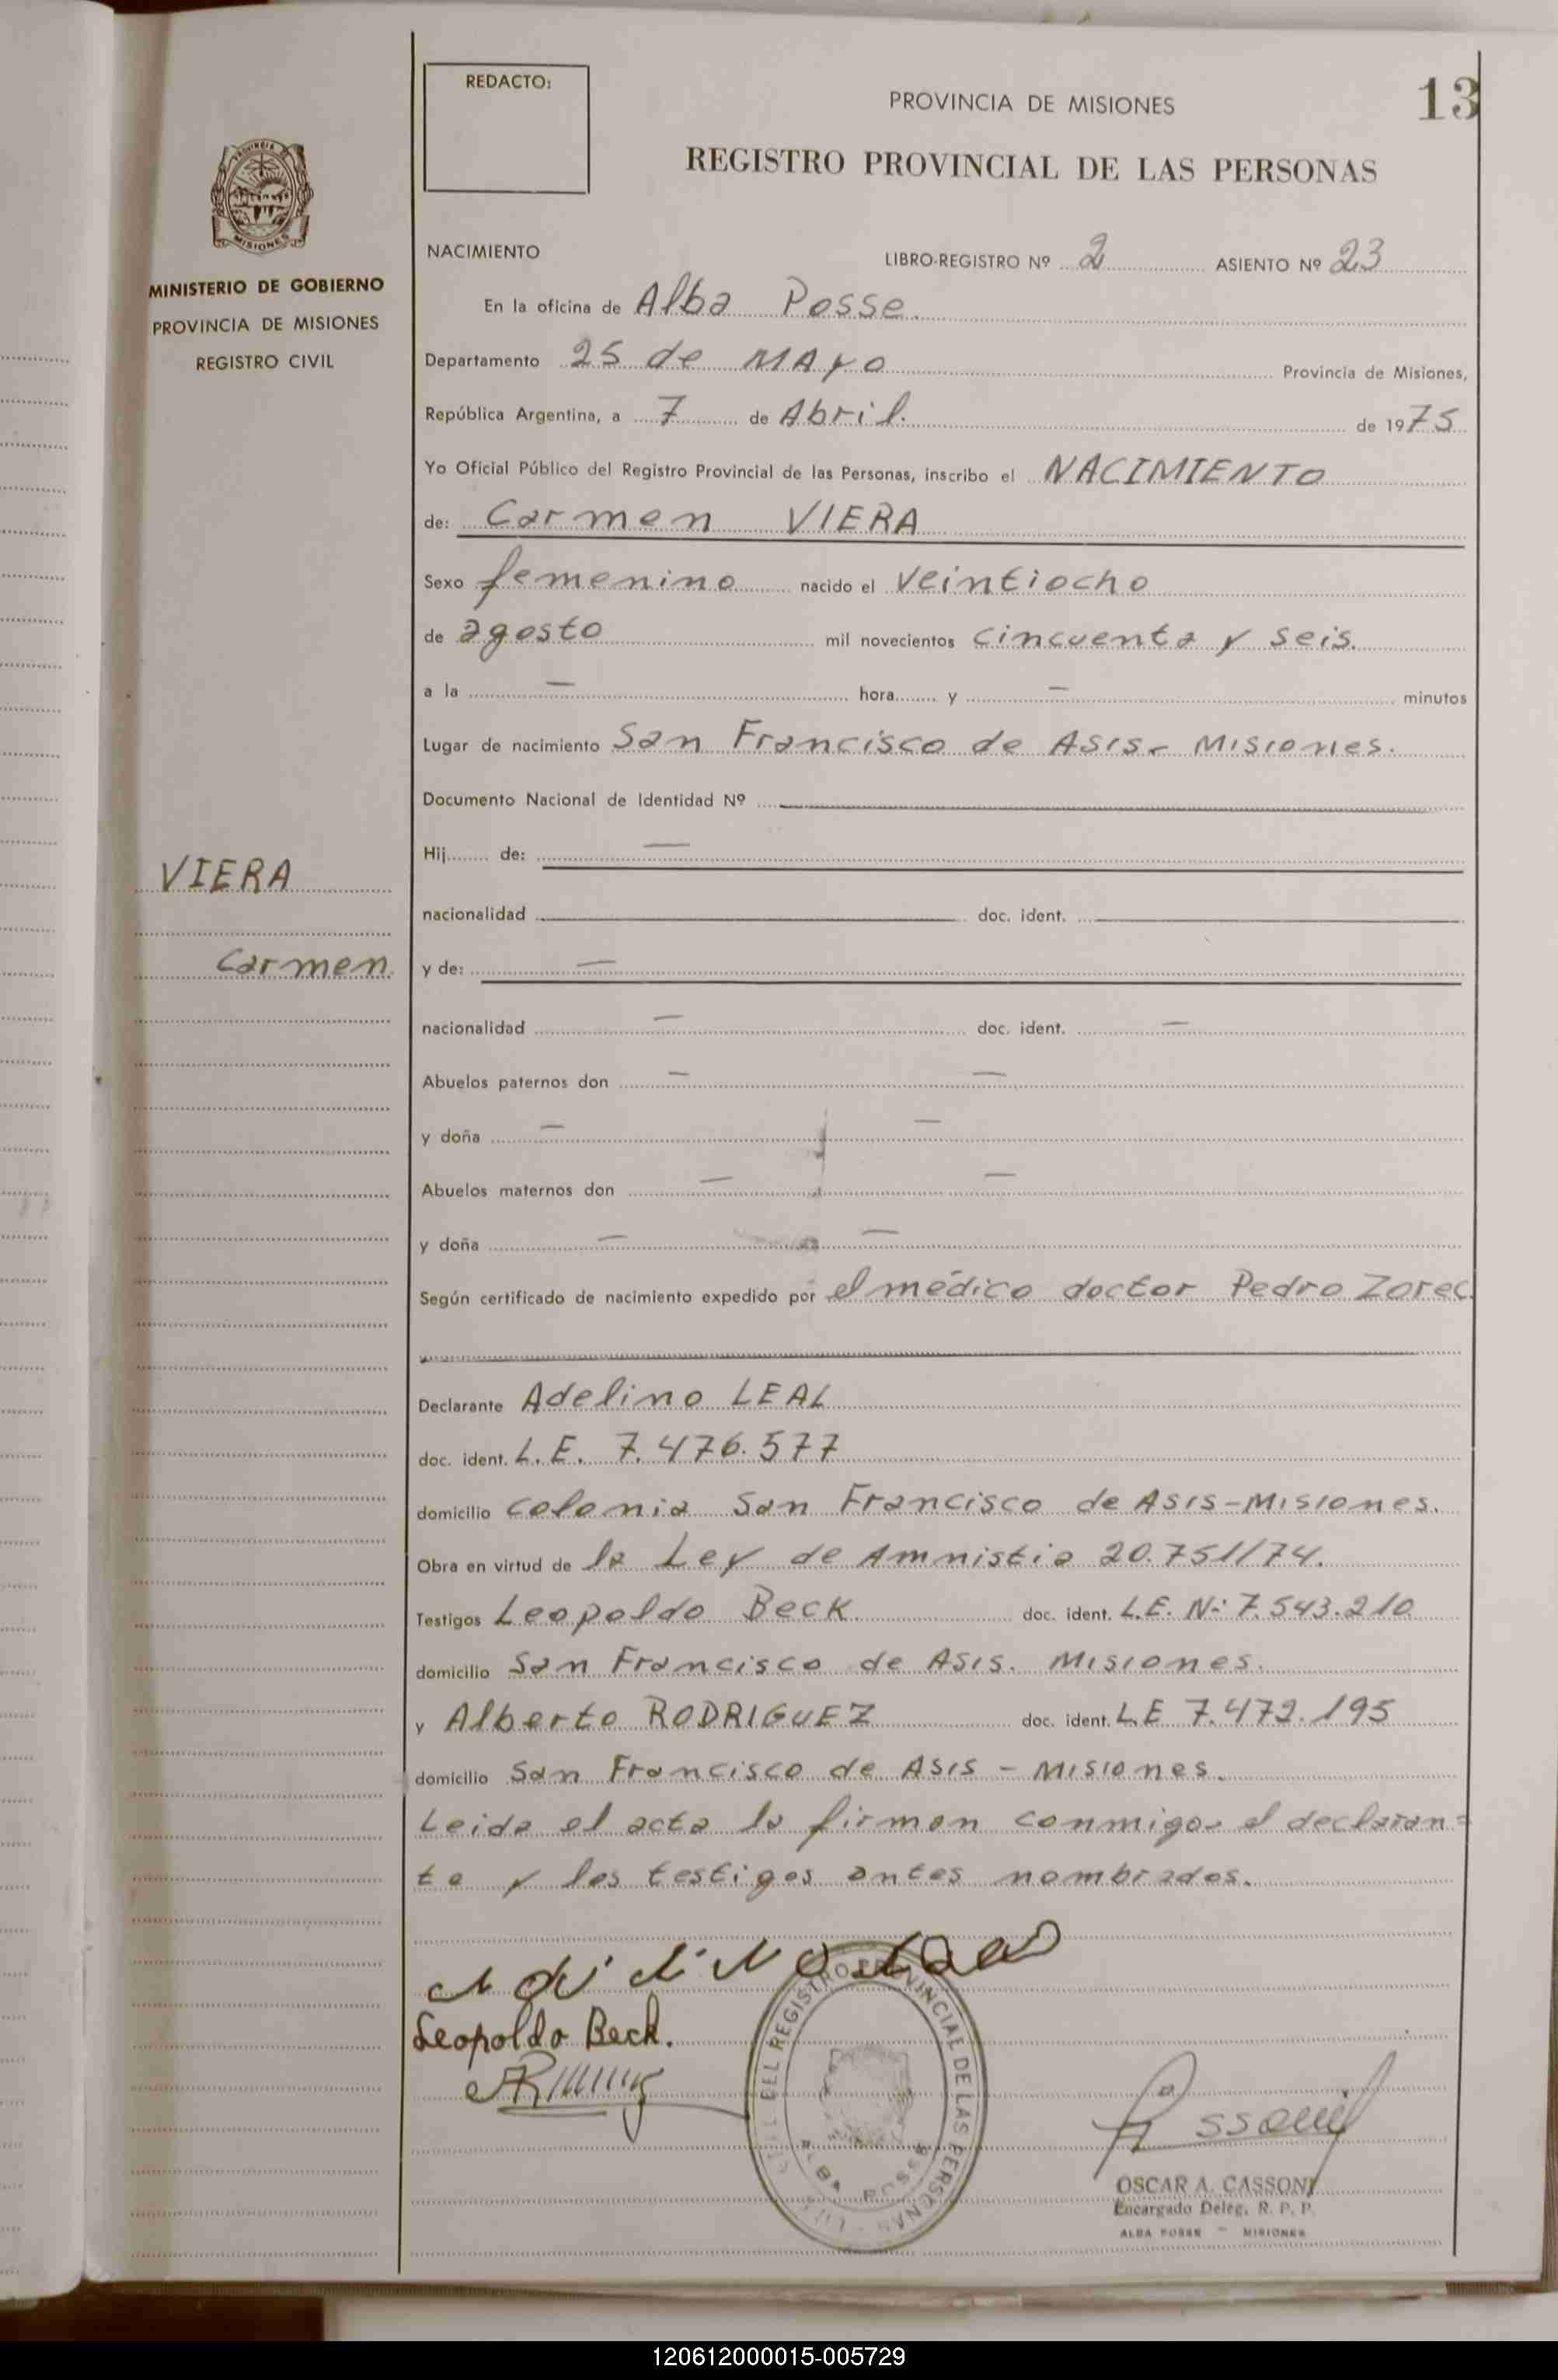 REDACTO:
PROVINCIA DE MISIONES
13
REGISTRO PROVINCIAL DE LAS PERSONAS
PROVINCIA DE
MISIONES
MINISTERIO DE GOBIERNO
PROVINCIA DE MISIONES
REGISTRO CIVIL
NACIMIENTO
LIBRO-REGISTRO Nº 2 ASIENTO Nº 23
En la oficina de Alba Posse.
Departamento 25 de MAYO Provincia de Misiones,
República Argentina, a 7 de Abril. de 1975
Yo Oficial Público del Registro Provincial de las Personas, inscribo el NACIMIENTO
de: Carmen VIERA
Sexo femenino nacido el veintiocho
de agosto mil novecientos cincuenta y seis.
a la — hora y — minutos
Lugar de nacimiento San Francisco de Asis - Misiones.
Documento Nacional de Identidad Nº
Hij de: —
VIERA
nacionalidad doc. ident.
Carmen.
y de: —
nacionalidad — doc. ident. —
Abuelos paternos don — —
y doña — —
Abuelos maternos don — —
y doña — —
Según certificado de nacimiento expedido por el médico doctor Pedro Zorec
Declarante Adelino LEAL
doc. ident. L.E. 7.476.577
domicilio colonia San Francisco de Asis-Misiones.
Obra en virtud de la Ley de Amnistia 20.751/74.
Testigos Leopoldo Beck doc. ident. L.E. N-: 7.543.210
domicilio San Francisco de Asis. Misiones.
y Alberto RODRIGUEZ doc. ident. L.E 7.472.195
domicilio San Francisco de Asis - Misiones.
Leida el acta la firman conmigo el declaran=
te y los testigos antes nombrados.
Leopoldo Beck.
DEL REGISTRO PROVINCIAL DE LAS PERSONAS
ALBA POSSE
OSCAR A. CASSONI
Encargado Deleg. R. P. P.
ALBA POSSE - MISIONES
120612000015-005729